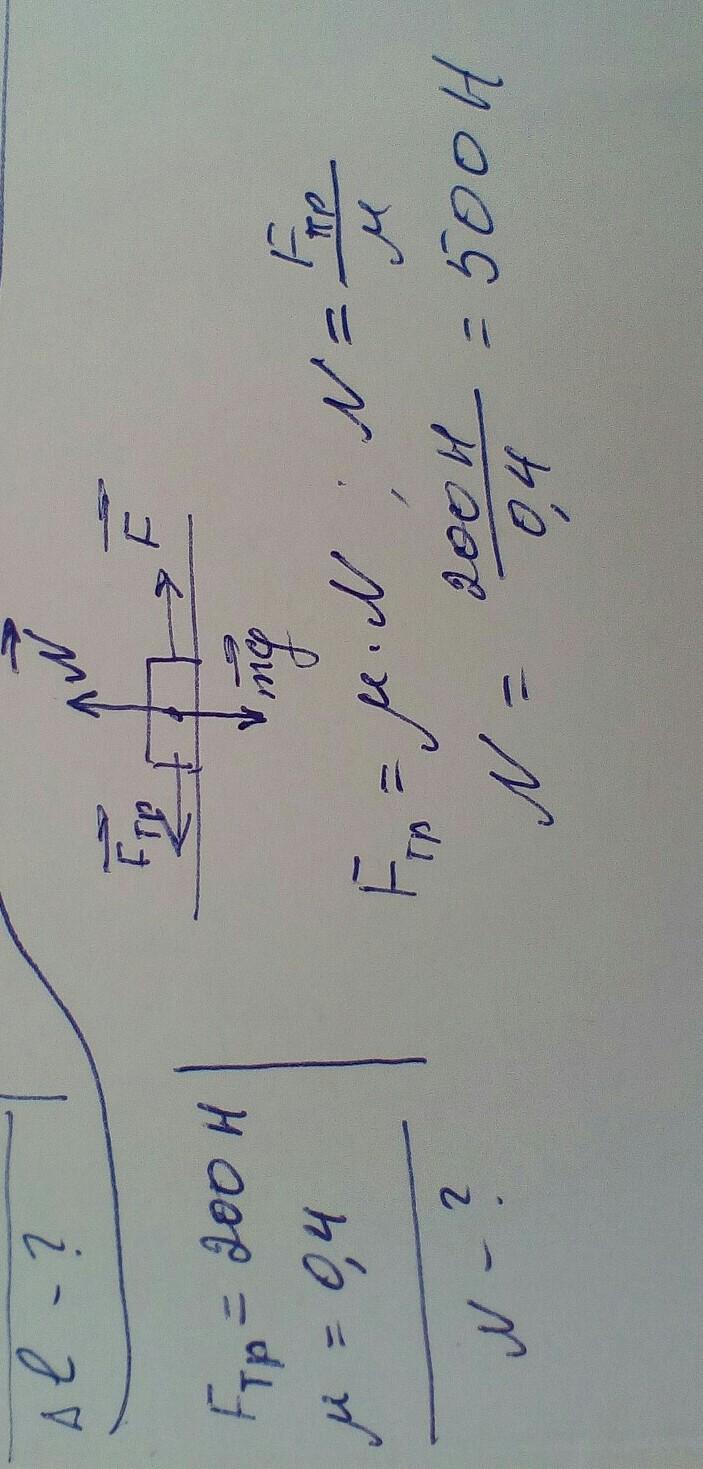 Δl - ?
Fтр = 200 Н
μ = 0,4
N - ?
N
Fтр
F
mg
Fтр = μ · N ; N = Fтр / μ
N = 200 Н / 0,4 = 500 Н